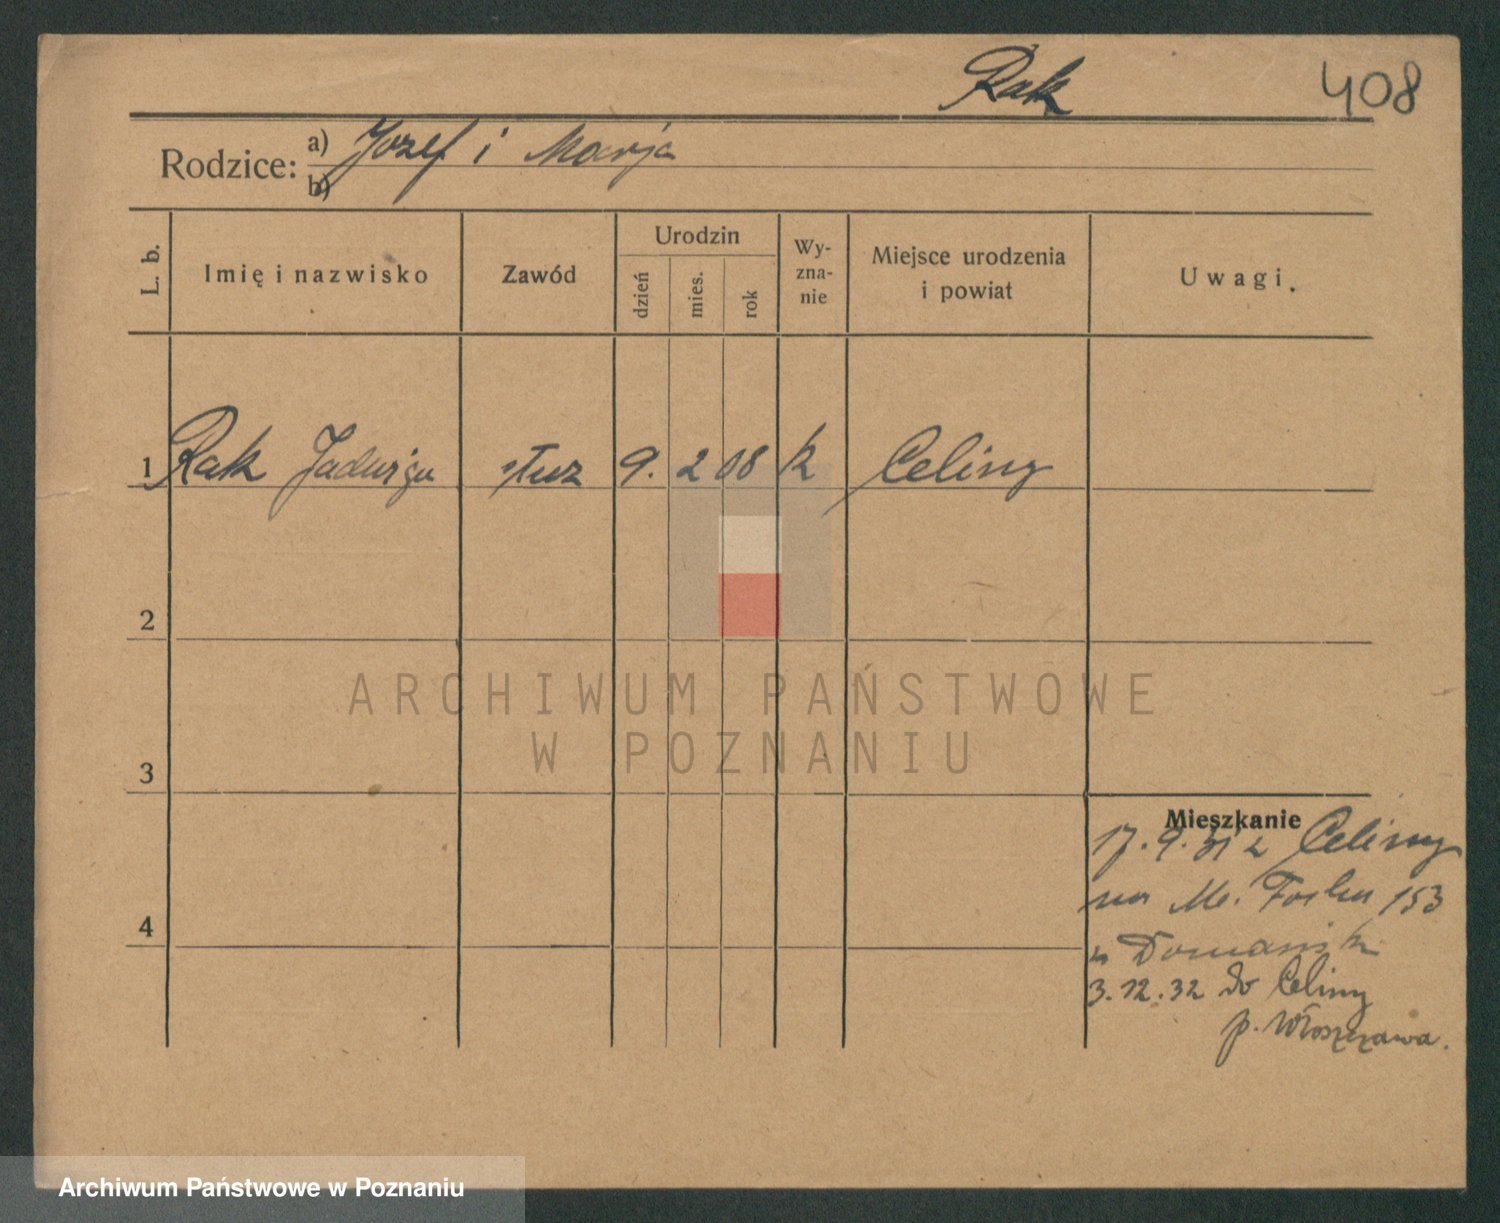 Rak 408
Rodzice: a) Jozef i Marja
b)
L. b. Imię i nazwisko Zawód Urodzin dzień mies. rok Wy-zna-nie Miejsce urodzenia i powiat Uwagi.
1 Rak Jadwiga służ 9. 2 08 k Celiny
2
ARCHIWUM PAŃSTWOWE
W POZNANIU
3
Mieszkanie
17.9.31 z Celiny
na M. Focha 153
3.12.32 do Celiny
4
p. Włoszczawa.
Archiwum Państwowe w Poznaniu